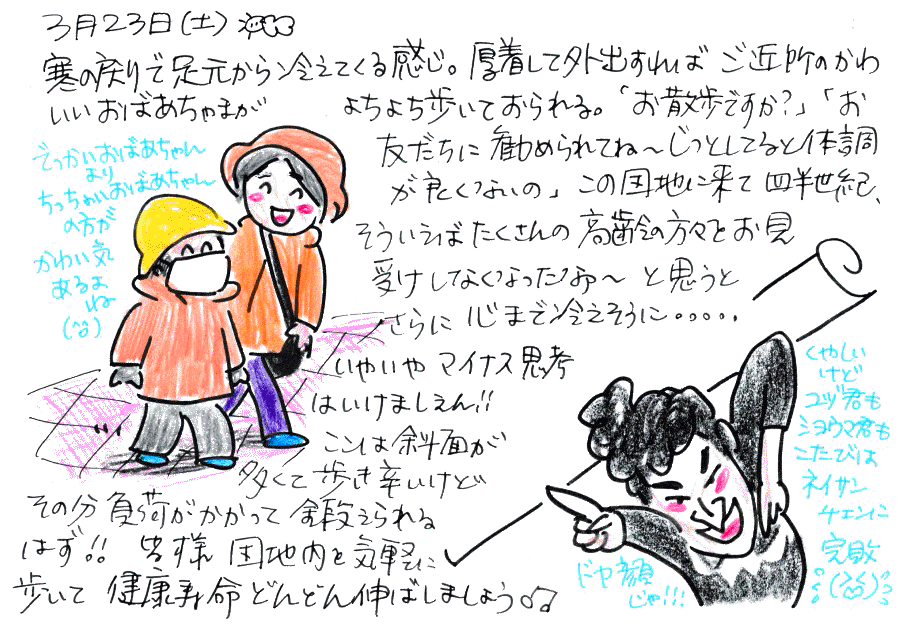 3月23日(土)
寒の戻りで足元から冷えてくる感じ。厚着して外出すれば ご近所のかわ
いいおばあちゃまが よちよち歩いておられる。「お散歩ですか?」「お
友だちに勧められてね〜じっとしてると体調
が良くないの」この団地に来て四半世紀、
そういえばたくさんの高齢の方々とお見
受けしなくなったなあ〜 と思うと
さらに 心まで冷えそうに・・・・・
いやいや マイナス思考
はいけましぇん!!
ここは斜面が
多くて歩き辛いけど
その分負荷がかかって鍛えられる
はず!! 皆様 団地内を気軽に
歩いて 健康寿命どんどん伸ばしましょう♫
でっかいおばあちゃん
より
ちっちゃいおばあちゃん
の方が
かわいい気
あるよ
ね
(笑)
くやしい
けど
ユヅ君も
ショウマ君も
こたびは
ネイサン
チェンに
完敗
(笑)
ドヤ顔
じゃ!!!